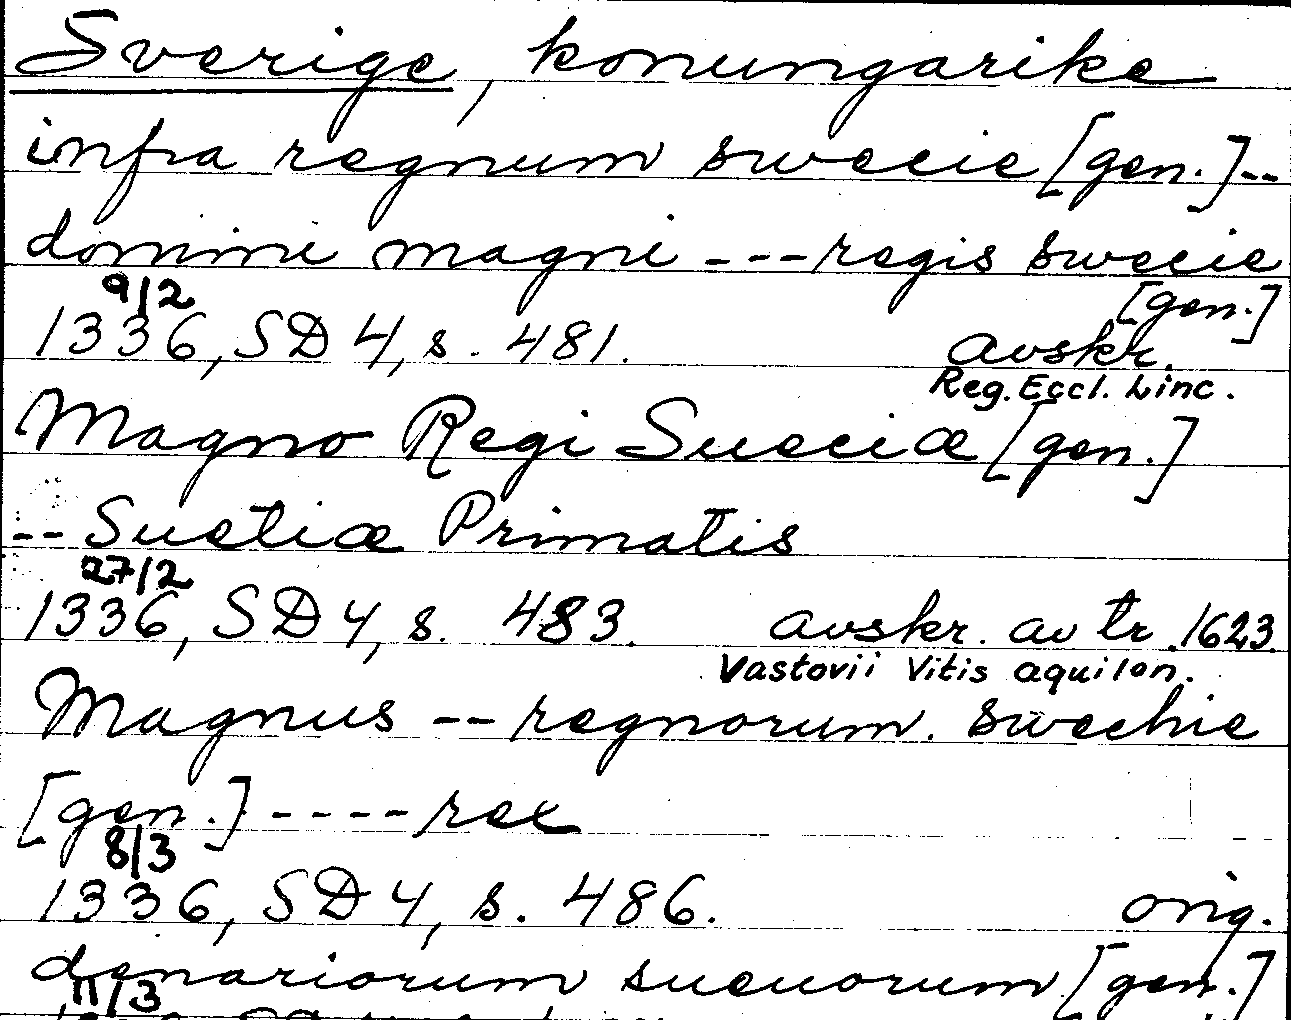 Sverige, konungarike
infra regnum swecie [gen.]--
domini magni ---regis swecie
[gen.]
9/2
1336, SD 4, s. 481. avskr.
Reg. Eccl. Linc.
Magno Regi Sueciæ [gen.]
-- Suetiæ Primatis
27/2
1336, SD 4, s. 483. avskr. av tr. 1623.
Vastovii Vitis aquilon.
Magnus -- regnorum. swechie
[gen.] ---- rex
8/3
1336, SD 4, s. 486. orig.
denariorum sueuorum [gen.]
11/3